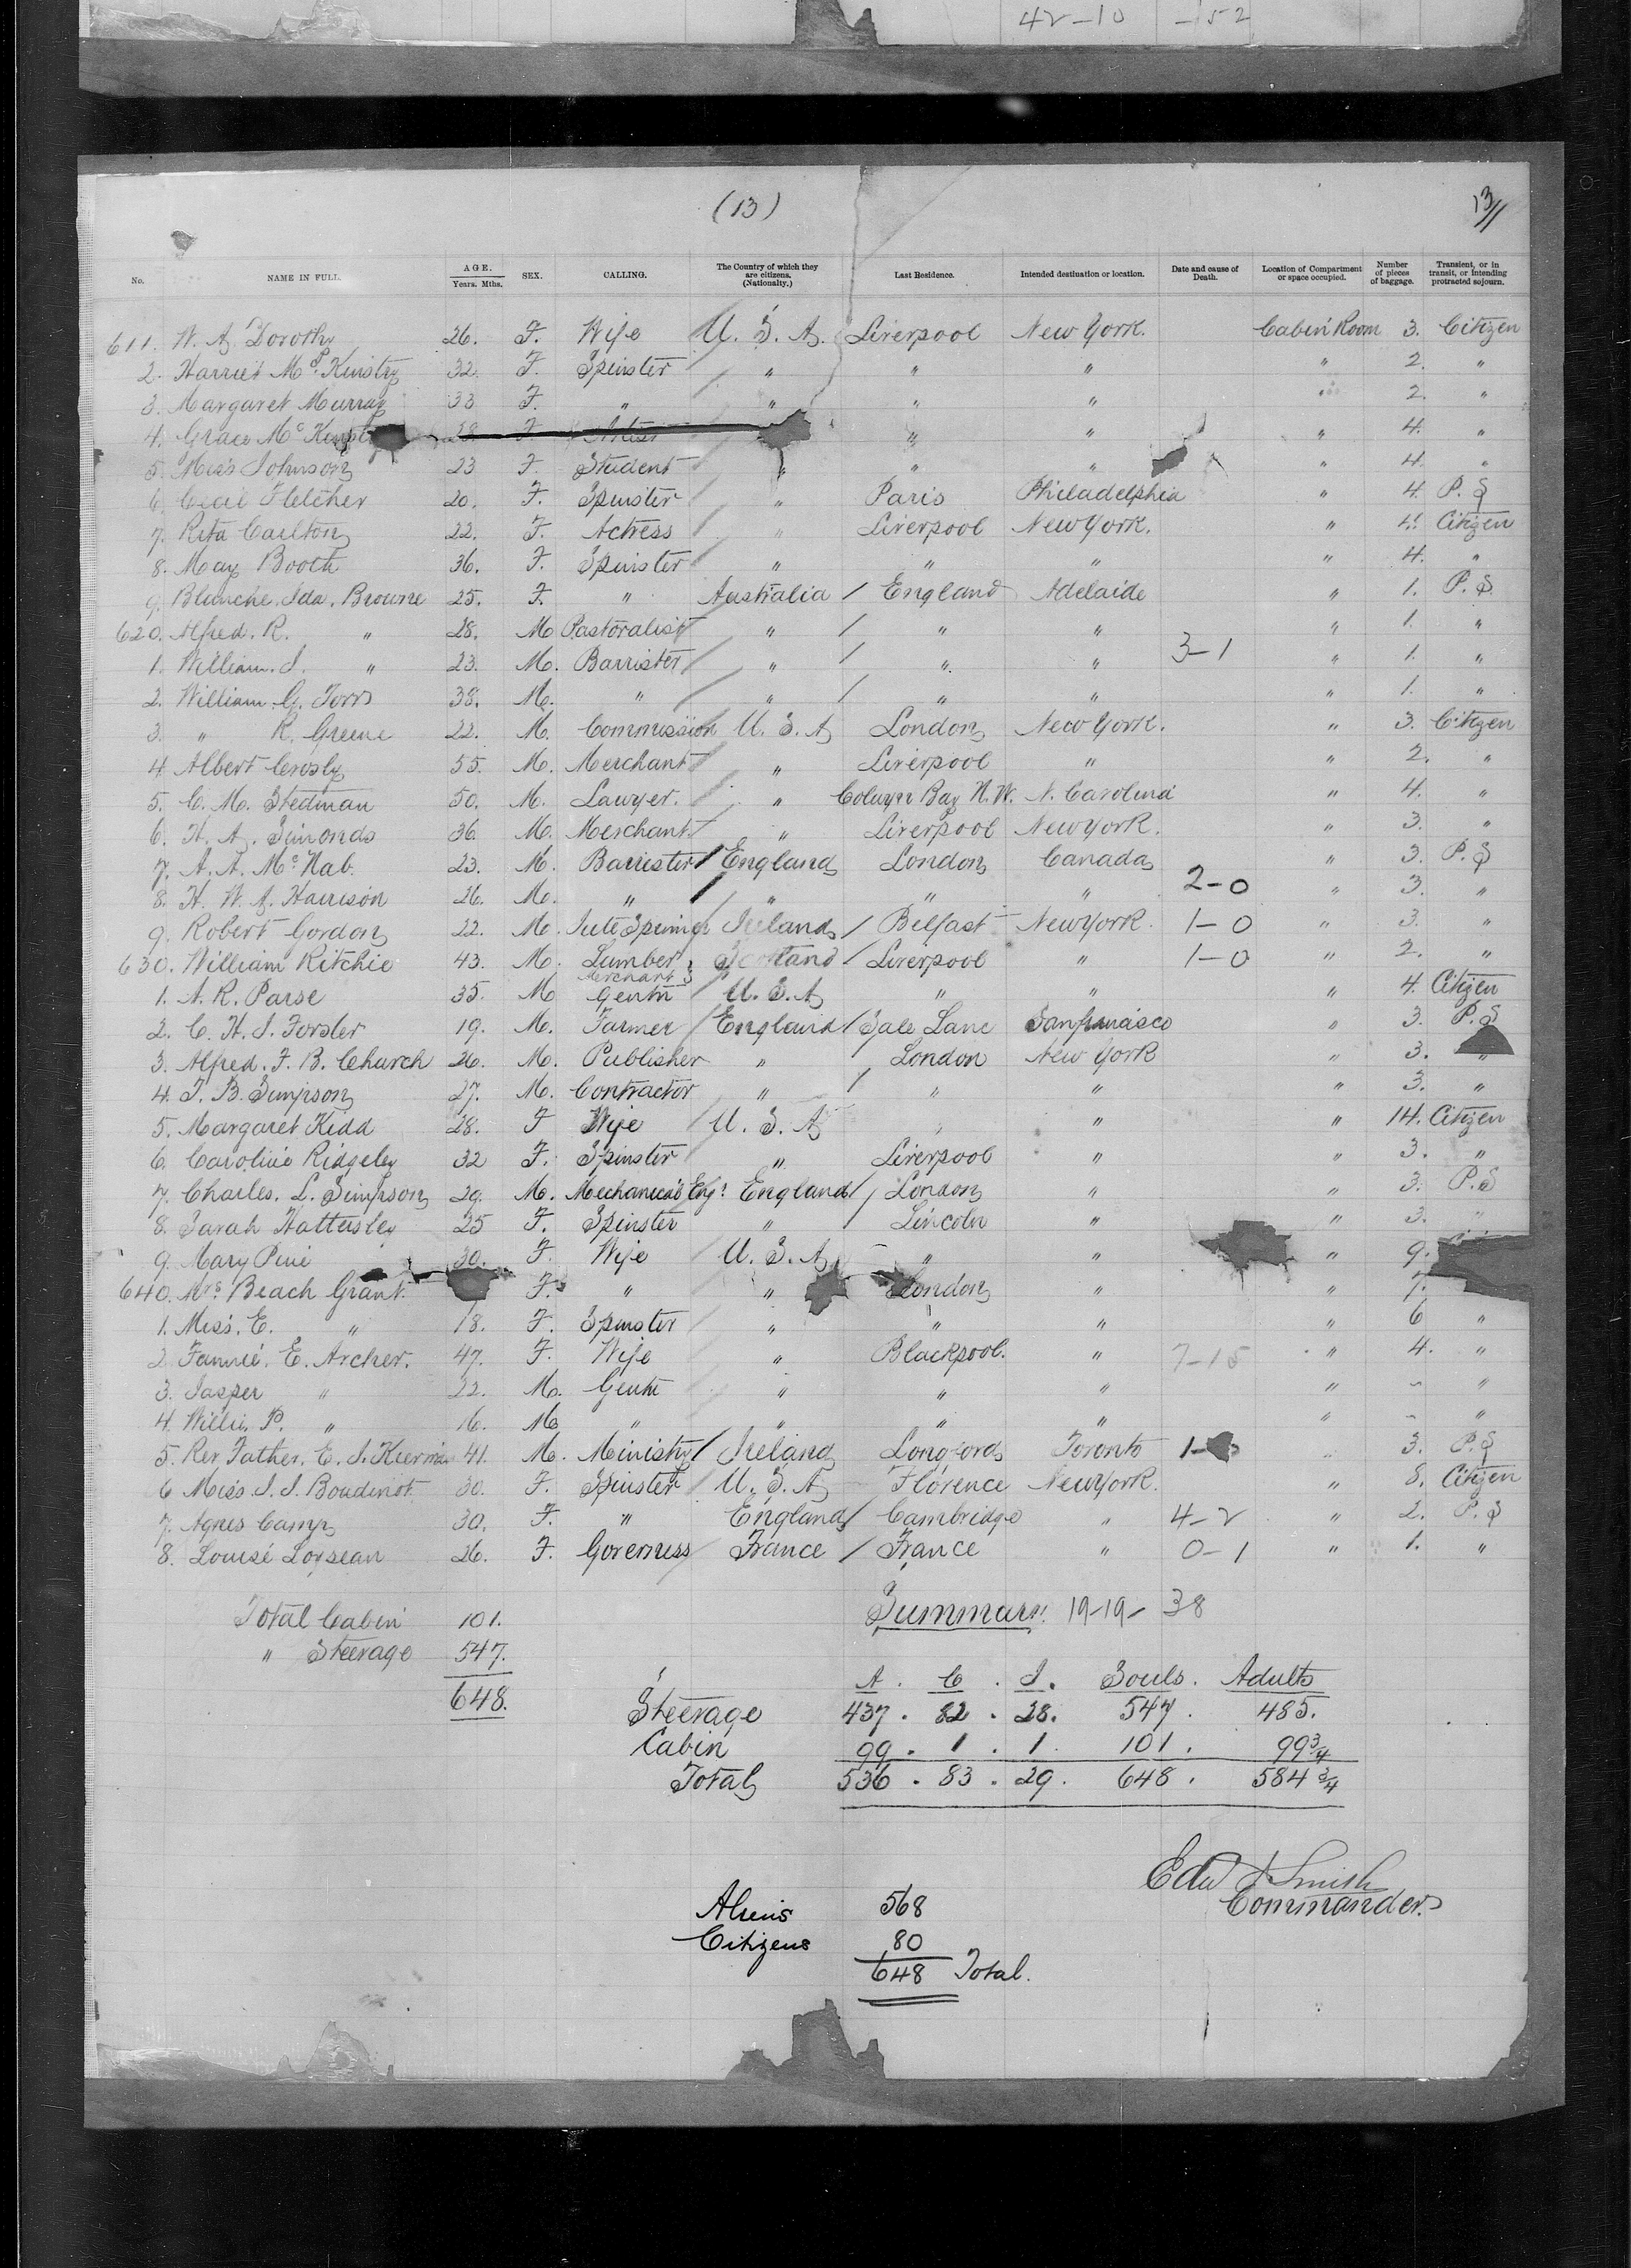 42-10 -152
(13)
13/
No. NAME IN FULL. AGE. Years. Mths. SEX. CALLING. The Country of which they are citizens. (Nationalty.) Last Residence. Intended destination or location. Date and cause of Death. Location of Compartment or space occupied. Number of pieces of baggage. Transient, or in transit, or intending protracted sojourn.
611. W. A. Dorothy 26. F. Wife U. S. A. Liverpool New York. Cabin Room 3. Citizen
2. Harriet Mc Kinstry 32. F. Spinster " " " " 2. "
3. Margaret Murray 33 F. " " " " " 2. "
4. Grace Mc 28 F Artist " " " 4. "
5. Miss Johnson 23 F. Student " " " " 4. "
6. Cecil Fletcher 20. F. Spinster " Paris Philadelphia " 4. P. S
7. Rita Carlton 22. F. Actress " Liverpool New York. " 4. Citizen
8. May Booth 36. F. Spinster " " " " 4. "
9. Blanche. Ida. Browne 25. F. " Australia / England Adelaide " 1. P. S.
620. Alfred. R. " 28. M Pastoralist " / " " " 1. "
1. William. J. " 23. M. Barrister " / " " 3-1 " 1. "
2. William. G. Torrs 38. M. " " / " " " 1. "
3. " R. Greene 22. M. Commission U. S. A London New York. " 3. Citizen
4. Albert Crosby 55. M. Merchant " Liverpool " " 2. "
5. C. M. Stedman 50. M. Lawyer. " Colwyn Bay N. W. N. Carolina " 4. "
6. H. A. Simonds 36. M. Merchant " Liverpool New York. " 3. "
7. A. A. Mc Nab. 23. M. Barrister / England London Canada " 3. P. S
8. H. W. A. Harrison 26. M. " / " " " 2-0 " 3. "
9. Robert Gordon 22. M. Jute Spinner Ireland / Belfast New York. 1-0 " 3. "
630. William Ritchie 43. M. Lumber Merchant Scotland / Liverpool " 1-0 " 2. "
1. A. R. Parse 35. M Gentn U. S. A " " " 4. Citizen
2. C. H. J. Forster 19. M. Farmer / England / Sale Lane Sanfrancisco " 3. P. S
3. Alfred. F. B. Church 26. M. Publisher " London New York " 3. "
4. T. B. Simpson 27. M. Contractor " / " " " 3. "
5. Margaret Kidd 28. F Wife U. S. A " " " 14. Citizen
6. Caroline Ridgeley 32 F. Spinster " Liverpool " " 3. "
7. Charles. L. Simpson 29. M. Mechanical Engr. England / London " " 3. P. S
8. Sarah Hattersley 25 F. Spinster " / Lincoln " " 3. "
9. Mary Pine 30. F. Wife U. S. A " " " 9.
640. Mrs Beach Grant. F. " " London " " 7.
1. Miss. E. " 18. F. Spinster " " " " 6 "
2. Fannie. E. Archer. 47. F. Wife " Blackpool. " 7-15 " 4. "
3. Jasper " 22. M. Gentn " " " " - "
4. Willis P. " 16. M " " " " " - "
5. Rev Father. E. J. Kiernan 41. M. Ministry / Ireland Longford Toronto 1- 3. P. S
6 Miss. J. J. Boudinot 30. F. Spinster U. S. A Florence New York. " 8. Citizen
7. Agnes Camp 30. F. " England / Cambridge " 4-2 " 2. P. S
8. Louise Loyseau 26. F. Governess France / France " 0-1 " 1. "
Summary. 19-19- 38
Total Cabin 101.
" Steerage 547.
648.
A. C. I. Souls. Adults
Steerage 437. 82. 28. 547. 485.
Cabin 99. 1. 1. 101. 99 3/4
Total 536. 83. 29. 648. 584 3/4
Edw J Smith
Commander.
Aliens 568
Citizens 80
648 Total.